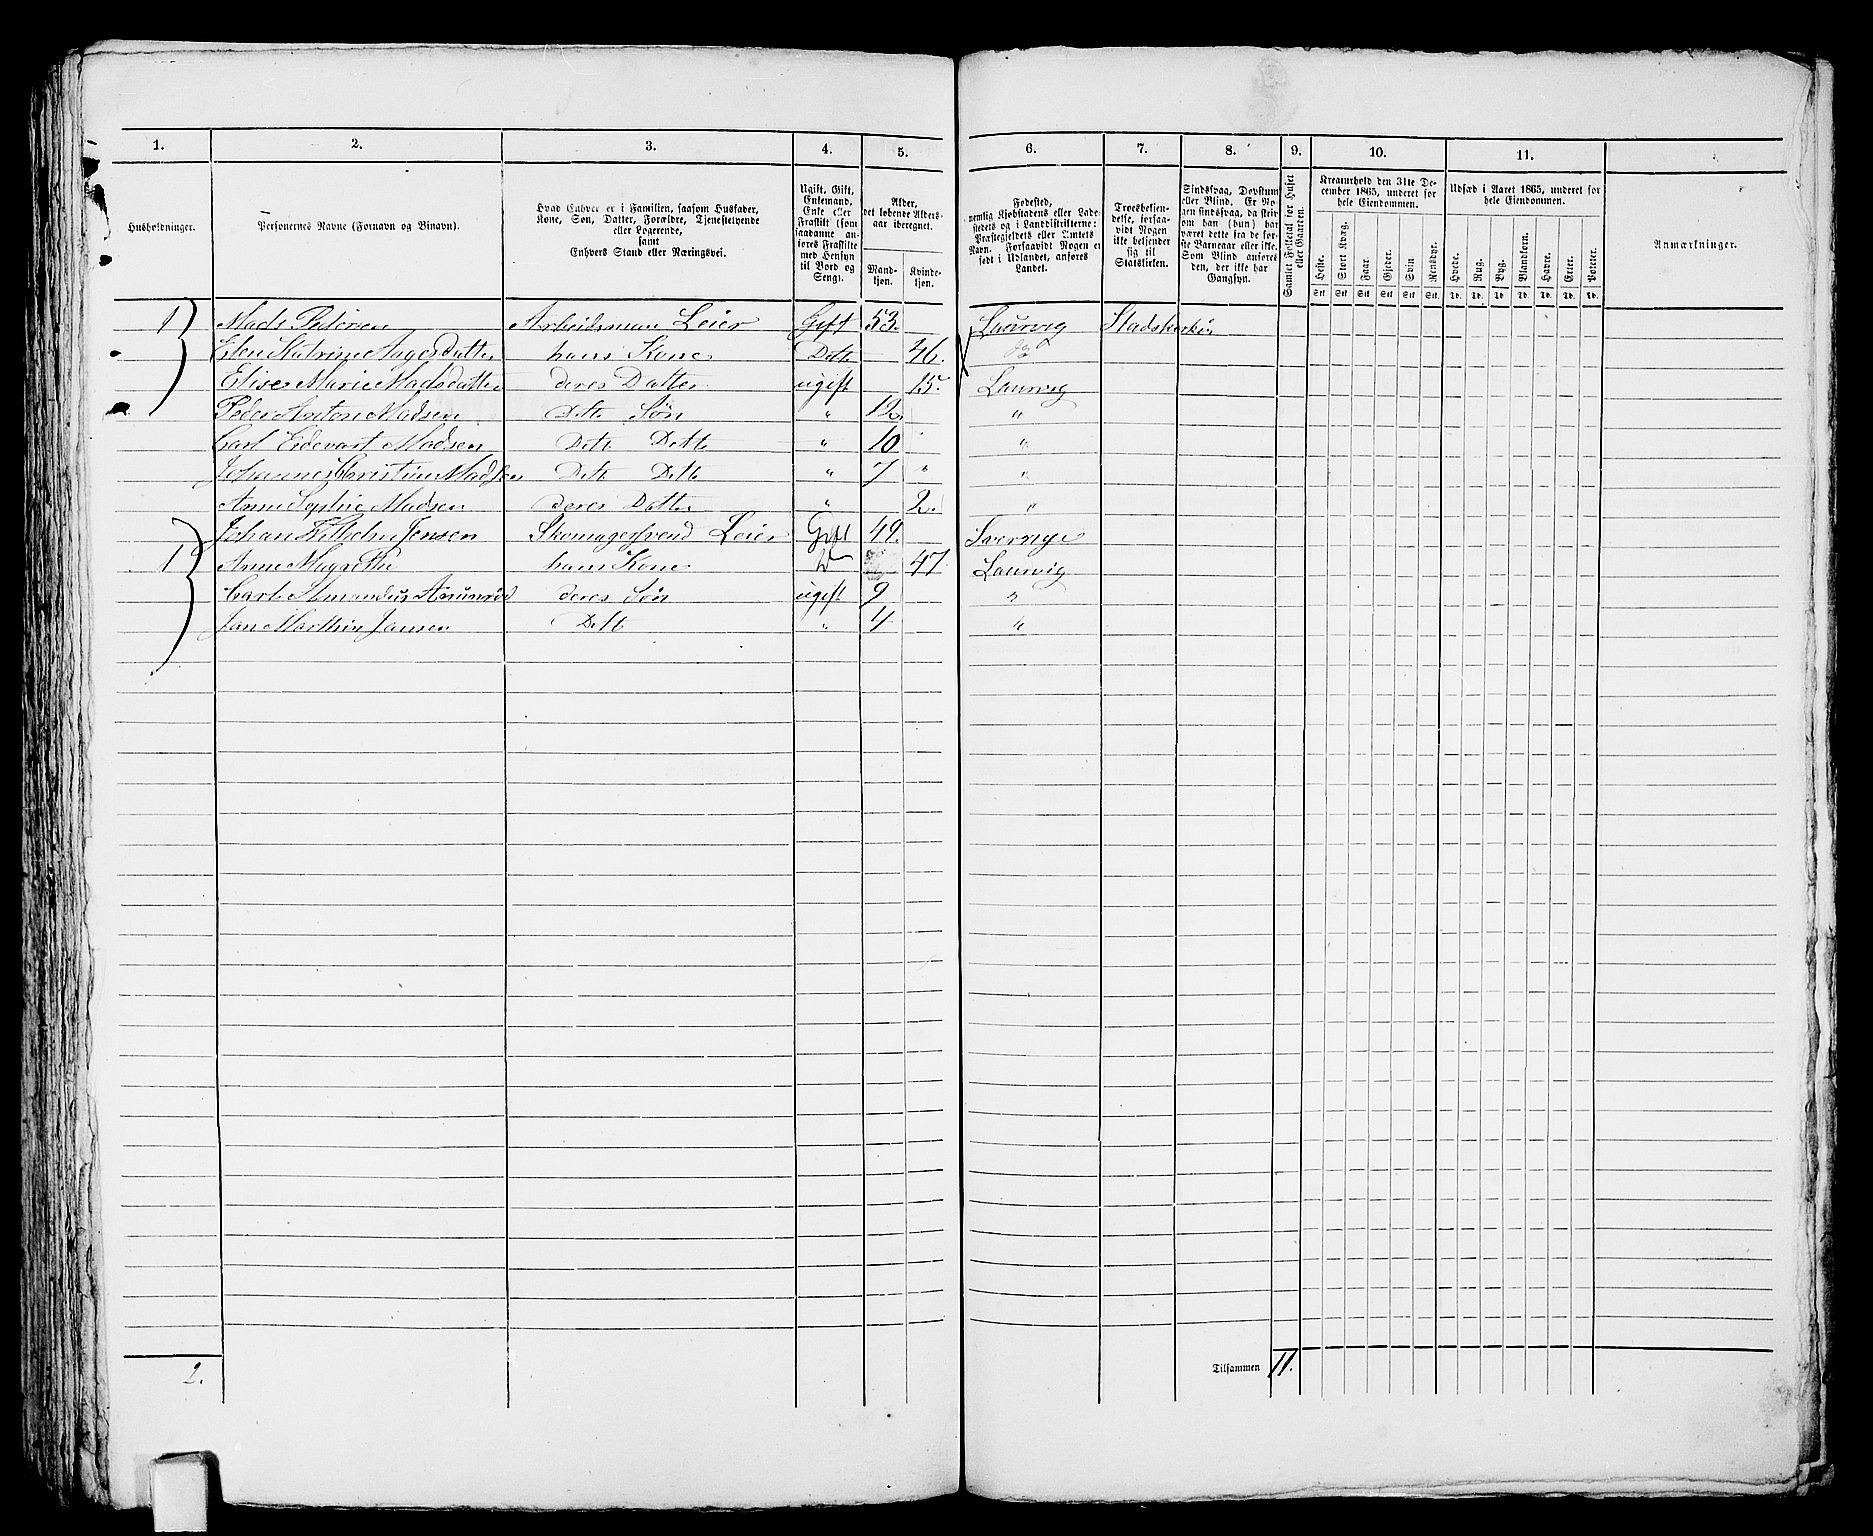 1. 2. 3. 4. 5. 6. 7. 8. 9. 10. 11.
Husholdninger.
Personernes Navne (Fornavn og Binavn).
Hvad Enhver er i Familien, saasom Husfader,
Kone, Søn, Datter, Forældre, Tjenestetyende
eller Logerende,
samt
Enhvers Stand eller Næringsvei.
Ugift, Gift,
Enkemand,
Enke eller
Fraskilt (som
saadanne an-
føres Fraskilte
med Hensyn
til Bord og
Seng).
Alder,
det løbende Alders-
aar iberegnet.
Mand-
kjøn.
Kvinde-
kjøn.
Fødested,
nemlig Kjøbstadens eller Lade-
stedets og i Landdistrikterne:
Præstegjeldets eller Amtets
Navn. Forsaavidt Nogen er
født i Udlandet, anføres
Landet.
Troesbekjen-
delse, forsaa-
vidt Nogen
ikke bekjender
sig til
Statskirken.
Sindssvag, Døvstum
eller Blind. Er No-
gen sindssvag, da skriv
om han (hun) har
været dette fra de før-
ste Barneaar eller ikke.
Som Blind anføres
den, der ikke har
Gangsyn.
Samlet Folketal for Huset
eller Gaarden.
Kreaturhold den 31te De-
cember 1865, underet for
hele Eiendommen.
Heste. Stort Kvæg. Faar. Gjeder. Svin Rensdyr.
Stk Stk Stk Stk Stk Stk
Udsæd i Aaret 1865, underet for
hele Eiendommen.
Hvede. Rug. Byg. Blandkorn. Havre. Erter. Poteter.
Td. Td. Td. Td. Td. Td. Td.
Anmærkninger.
1 Mads Pedersen Arbeidsman Leier Gift 53. Laurvig Stadskirken
Elen Katrine Aagesdatter hans Kone Dette 46. do
Elise Marie Madsdatter deres Datter ugift 15. Laurvig
Peder Anton Madsen Dette Søn " 12 "
Carl Eidevart Madsen Dette Dette " 10 "
Johannes Christian Madsen Dette Dette " 7 " "
Anne Sophie Madsen deres Datter " 2. "
Johan Wilhelm Jensen Skomagersvend Leier Gift 49. Sverrige
1 Anne Magrethe hans Kone 47 Laurvig
Carl Amandus deres Søn ugift 9 "
Jan Marthin Jansen Dette " 4 "
2.
Tilsammen 11.